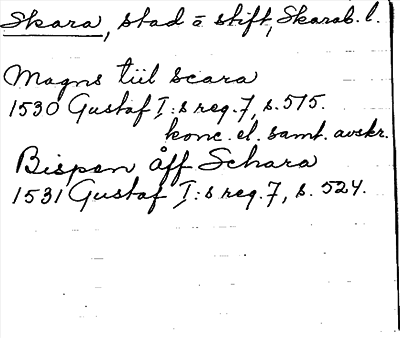 Skara, stad o stift, Skarab. l.
Magns tiil scara
1530 Gustaf I:s reg. 7, s. 575.
konc. el. samt. avskr.
Bispen åff Schara
1531 Gustaf I:s reg. 7, s. 524.